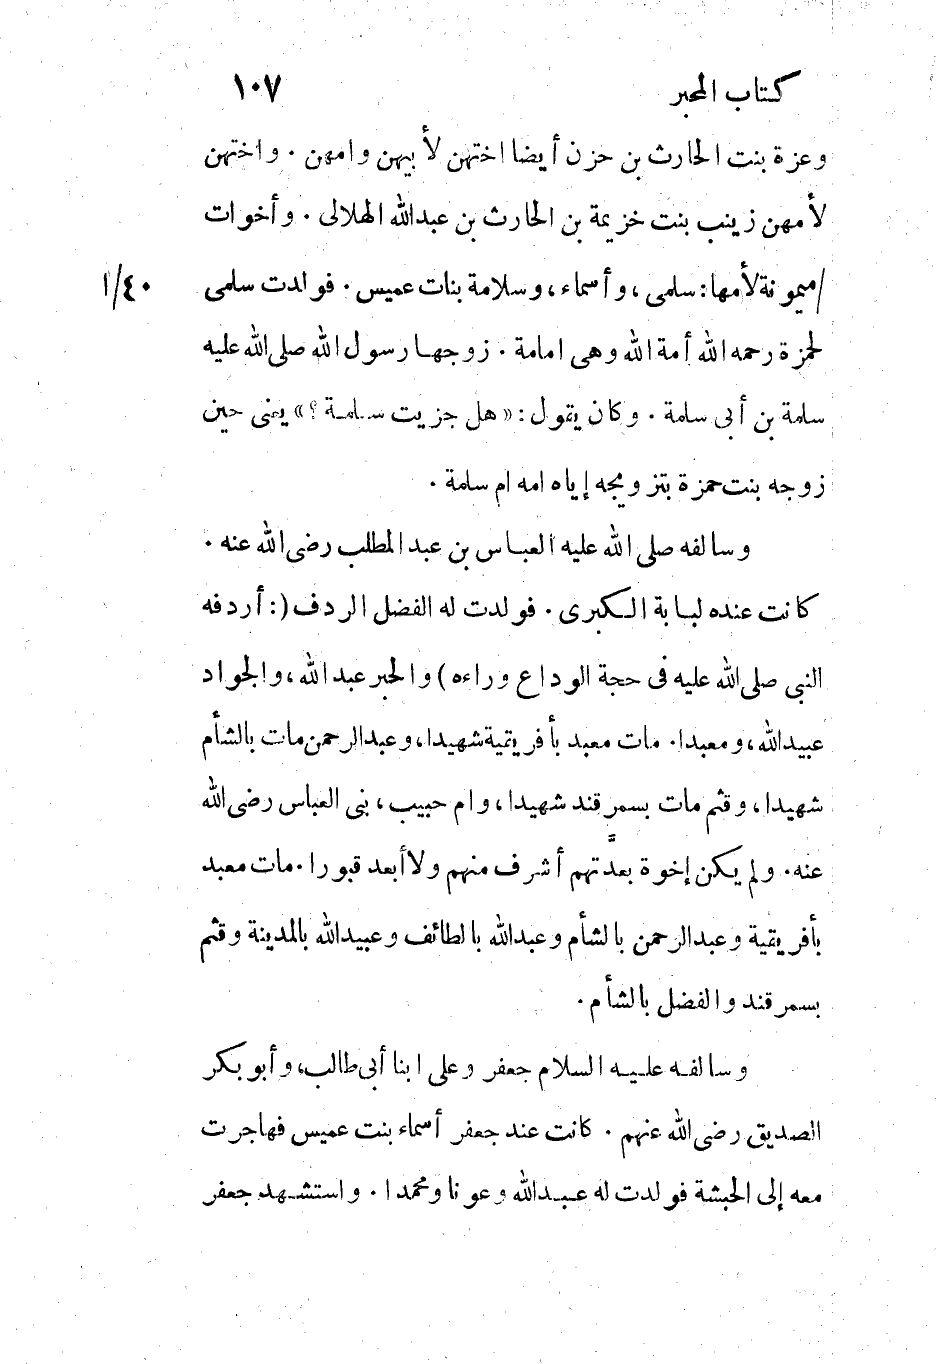 كتاب المحبر ١٠٧
وعزة بنت الحارث بن حزن أيضا اختهن لأبيهن وامهن . واختهن
لأمهن زينب بنت خزيمة بن الحارث بن عبدالله الهلالى . وأخوات
/ميمونة لأمها: سلمى ، وأسماء ، وسلامة بنات عميس . فولدت سلمى ٤٠/ا
لحمزة رحمه الله أمة الله وهى امامة . زوجها رسول الله صلى الله عليه
سلمة بن أبى سلمة . وكان يقول : «هل جزيت سلمة ؟» يعنى حين
زوجه بنت حمزة بتزويجه إياه امه ام سلمة .
وسالفه صلى الله عليه العباس بن عبد المطلب رضى الله عنه .
كانت عنده لبابة الكبرى . فولدت له الفضل الردف (: أردفه
النبى صلى الله عليه فى حجة الوداع وراءه) والحبر عبدالله ، والجواد
عبيدالله ، ومعبدا . مات معبد بأفريقية شهيدا ، وعبدالرحمن مات بالشأم
شهيدا ، وقثم مات بسمرقند شهيدا ، وام حبيب ، بنى العباس رضى الله
عنه . ولم يكن إخوة بعدّتهم أشرف منهم ولا أبعد قبورا . مات معبد
بأفريقية وعبدالرحمن بالشأم وعبدالله بالطائف وعبيدالله بالمدينة وقثم
بسمرقند والفضل بالشأم .
وسالفه عليه السلام جعفر وعلى ابنا أبى طالب ، وأبو بكر
الصديق رضى الله عنهم . كانت عند جعفر أسماء بنت عميس فهاجرت
معه إلى الحبشة فولدت له عبدالله وعونا ومحمدا . واستشهد جعفر